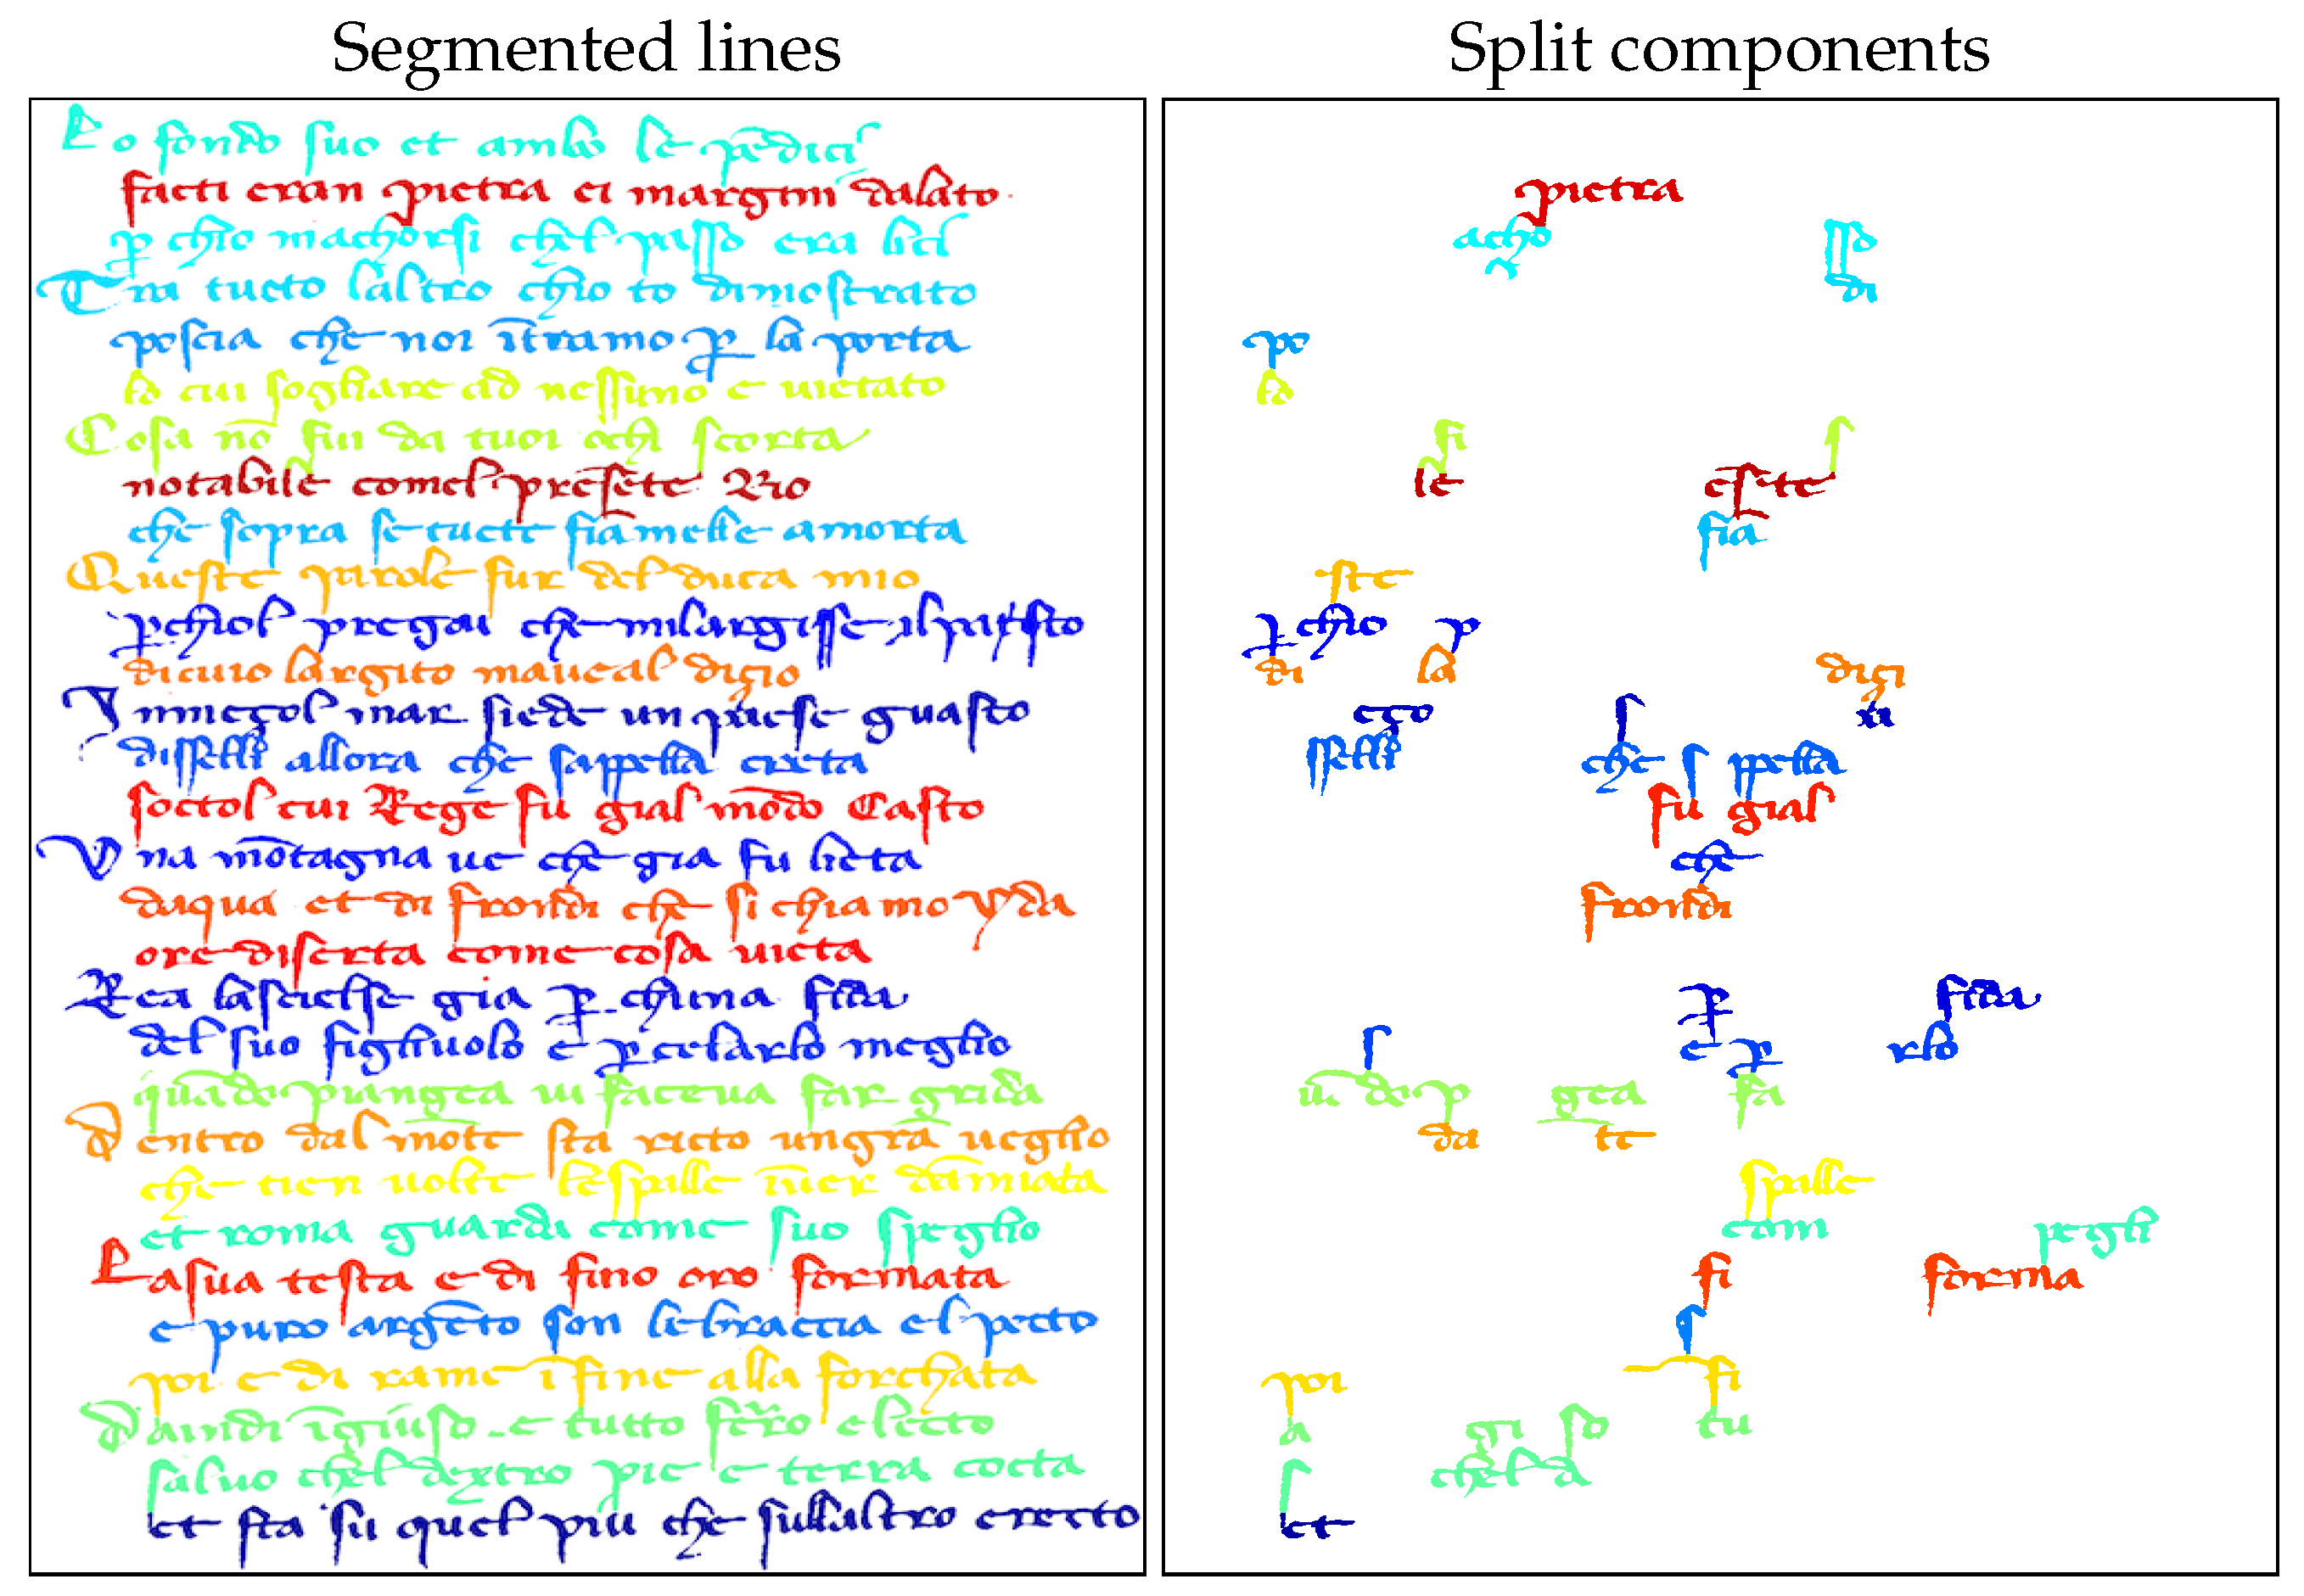 Segmented lines
Lo fondo suo et ambo le pēdici
facti eran pietra ei margini dalato
ꝑ chio machorsi chel passo era lici
Tra tucto laltro chio to dimostrato
poscia che noi ītramo ꝑ la porta
lo cui sogliare ad nessuno e uietato
Cosa nō fui da tuoi ochi scorta
notabile comel presēte Rio
che sopra se tucte fiamelle amorta
Queste parole fur del duca mio
ꝑchiol pregai che milargisse il pasto
di cuio largito maueal digio
In meçol mar siede un paese guasto
disselli allora che sappella creta
soctol cui Rege fu gial mōdo Casto
Una mōtagna ue che gia fu lieta
daqua et di frondi che si chiamo Yda
ore diserta come cosa uieta
Rea lascielse gia ꝑ chuna fida
del suo figliuolo e ꝑ celarlo meglio
quādo piangea ui faceua far grida
Dentro dal mōte sta ricto un grā ueglio
che tien uolte le spalle īuer dāmiata
et roma guarda come suo speglio
La sua testa e di fino oro formata
e puro argēto son le braccia el pecto
poi e di rame ī fine alla forchata
Da indi ī giuso e tutto ferro electo
saluo chel dextro pie e terra cocta
et sta su quel piu che sullaltro erecto
Split components
pietra
acho
sso
di
po
lo
fi
le
s
este
fia
ste
ꝑ chio p
di la digi
ço
sselli
s
che s ppella
fu gial
che
frondi
ꝑ fida
s e ꝑ rlo
gea fa
da te
spalle
com pegli
fi forma
s
fi
poi
a gi so tu
chel d
s
et